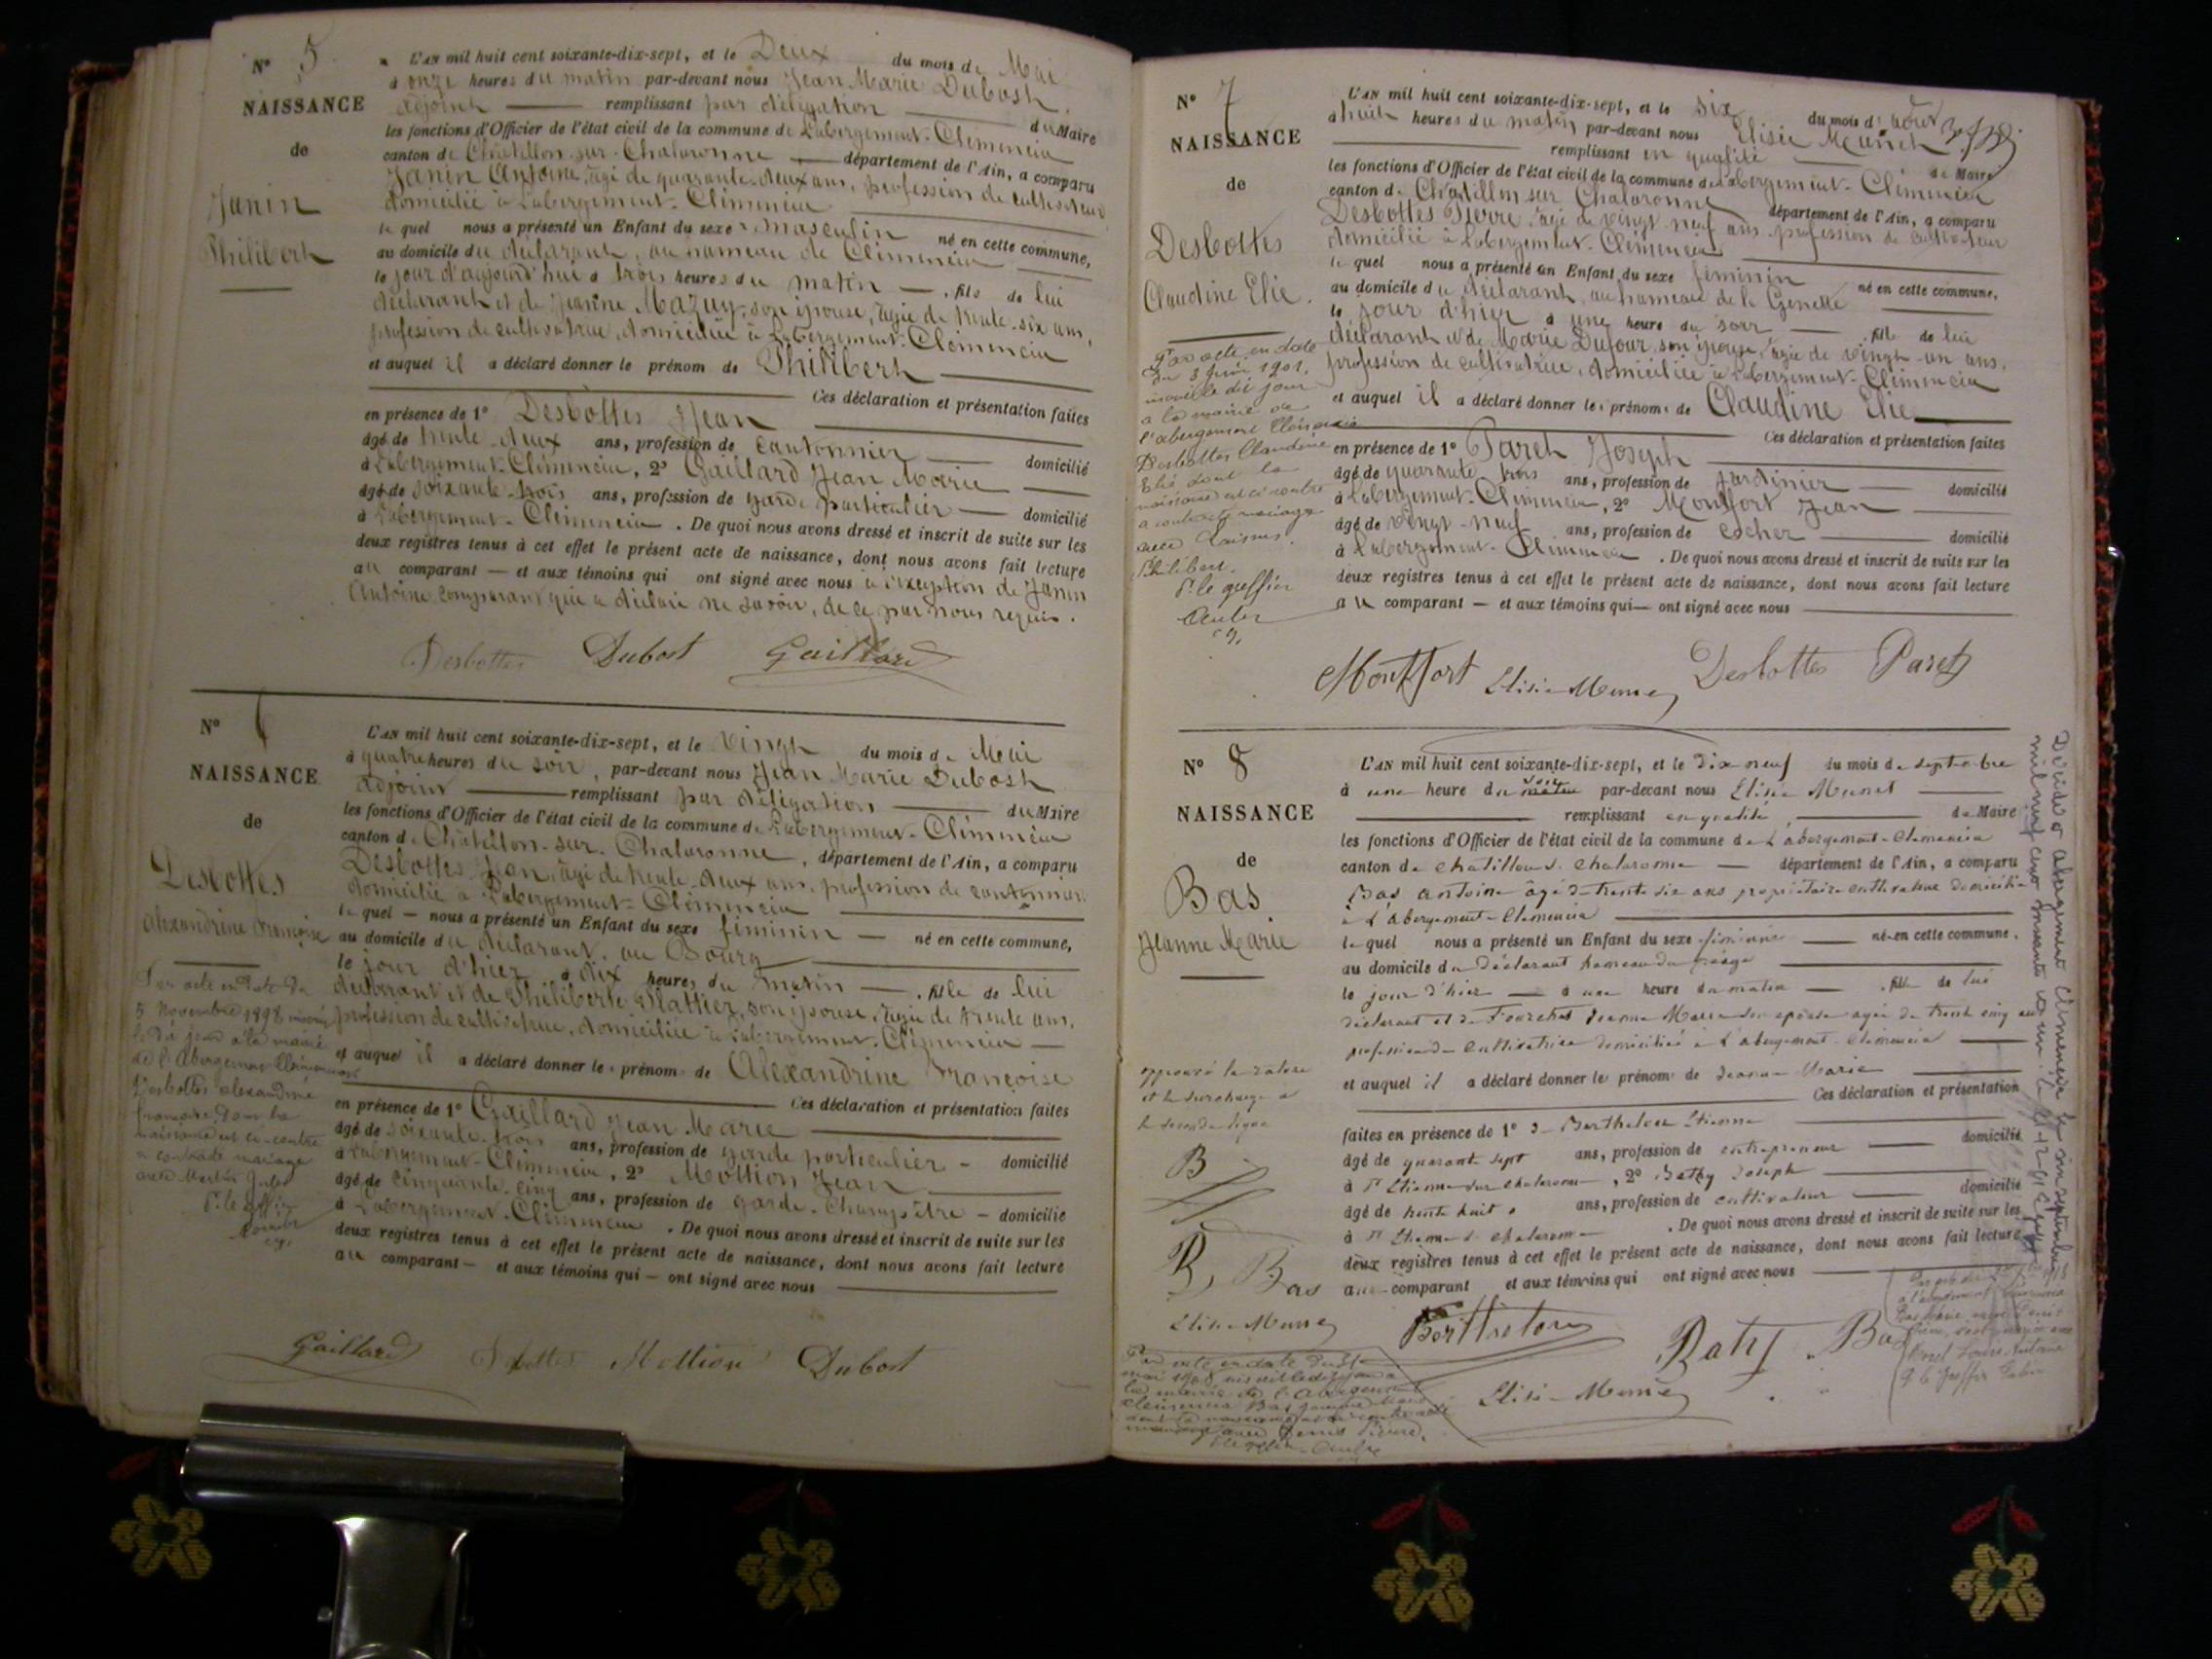 N° 5
NAISSANCE
de
Janin
Philibert
L'AN mil huit cent soixante-dix-sept, et le Deux du mois de Mai
à onze heures du matin par-devant nous Jean Marie Dubost
adjoint remplissant par délégation du Maire
les fonctions d'Officier de l'état civil de la commune de L'abergement-Clémencia
canton de Châtillon-sur-Chalaronne département de l'Ain, a comparu
Janin Antoine, âgé de quarante-deux ans, profession de cultivateur
domicilié à L'abergement-Clémencia
le quel nous a présenté un Enfant du sexe masculin né en cette commune,
au domicile du déclarant, au hameau de Clémencia
le jour d'aujourd'hui à trois heures du matin, fils de lui
déclarant et de Jeanne Mazuy, son épouse, âgée de trente-six ans,
profession de cultivatrice, domiciliée à L'abergement-Clémencia
et auquel il a déclaré donner le prénom de Philibert
Ces déclaration et présentation faites
en présence de 1° Desbottes Jean
âgé de trente-deux ans, profession de cantonnier domicilié
à L'abergement-Clémencia, 2° Gaillard Jean Marie
âgé de soixante-trois ans, profession de garde particulier domicilié
à L'abergement-Clémencia. De quoi nous avons dressé et inscrit de suite sur les
deux registres tenus à cet effet le présent acte de naissance, dont nous avons fait lecture
au comparant — et aux témoins qui ont signé avec nous à l'exception de Janin
Antoine comparant qui a déclaré ne savoir, de ce par nous requis.
Desbottes Dubost Gaillard
N° 6
NAISSANCE
de
Desbottes
Alexandrine Françoise
Par acte en date du
5 Novembre 1898 inscrit
le dit jour à la mairie
de l'Abergement Clémencia
Desbottes Alexandrine
Françoise dont la
naissance est ci-contre
a contracté mariage
avec Martin Jules
P. le greffier
L'AN mil huit cent soixante-dix-sept, et le Vingt du mois de Mai
à quatre heures du soir, par-devant nous Jean Marie Dubost
adjoint remplissant par délégation du Maire
les fonctions d'Officier de l'état civil de la commune de L'abergement-Clémencia
canton de Châtillon-sur-Chalaronne, département de l'Ain, a comparu
Desbottes Jean, âgé de trente-deux ans, profession de cantonnier
domicilié à L'abergement-Clémencia
le quel — nous a présenté un Enfant du sexe féminin — né en cette commune,
au domicile du déclarant, au Bourg
le jour d'hier à dix heures du matin —, fille de lui
déclarant et de Philiberte Plattier, son épouse, âgée de trente ans,
profession de cultivatrice, domiciliée à L'abergement-Clémencia —
et auquel il a déclaré donner les prénoms de Alexandrine Françoise
Ces déclaration et présentation faites
en présence de 1° Gaillard Jean Marie
âgé de soixante-trois ans, profession de garde particulier - domicilié
à L'abergement-Clémencia, 2° Mottion Jean
âgé de cinquante-cinq ans, profession de garde-Champêtre - domicilié
à L'abergement-Clémencia. De quoi nous avons dressé et inscrit de suite sur les
deux registres tenus à cet effet le présent acte de naissance, dont nous avons fait lecture
au comparant — et aux témoins qui — ont signé avec nous
Gaillard Desbottes Mottion Dubost
N° 7
NAISSANCE
de
Desbottes
Claudine Elie.
Par acte en date
du 8 Juin 1901,
inscrit le dit jour
à la mairie de
l'abergement Clémencia
Desbottes Claudine
Elie dont la
naissance est ci contre
a contracté mariage
avec
Philibert.
P. le greffier
L'AN mil huit cent soixante-dix-sept, et le six du mois d'août
à huit heures du matin, par-devant nous Elisée Munet
remplissant en qualité de Maire
les fonctions d'Officier de l'état civil de la commune de L'abergement-Clémencia
canton de Châtillon sur Chalaronne département de l'Ain, a comparu
Desbottes Pierre, âgé de vingt-neuf ans, profession de cultivateur
domicilié à L'abergement-Clémencia
le quel nous a présenté un Enfant du sexe féminin né en cette commune,
au domicile du déclarant, au hameau de la Genette
le jour d'hier à une heure du soir, fille de lui
déclarant et de Marie Dufour, son épouse, âgée de vingt-un ans,
profession de cultivatrice, domiciliée à L'abergement-Clémencia
et auquel il a déclaré donner les prénoms de Claudine Elie
Ces déclaration et présentation faites
en présence de 1° Paret Joseph
âgé de quarante trois ans, profession de jardinier domicilié
à L'abergement-Clémencia, 2° Montfort Jean
âgé de vingt-neuf ans, profession de cocher domicilié
à L'abergement-Clémencia. De quoi nous avons dressé et inscrit de suite sur les
deux registres tenus à cet effet le présent acte de naissance, dont nous avons fait lecture
au comparant — et aux témoins qui — ont signé avec nous
Montfort Elisée Munet Desbottes Paret
N° 8
NAISSANCE
de
Bas
Jeanne Marie
approuvé la rature
et la surcharge à
la seconde ligne
B
B, Bas
Elisée Munet
L'AN mil huit cent soixante-dix-sept, et le Dix neuf du mois de septembre
à une heure du soir par-devant nous Elisée Munet
remplissant en qualité de Maire
les fonctions d'Officier de l'état civil de la commune de L'abergement-Clemencia
canton de chatillon s. chalaronne — département de l'Ain, a comparu
Bas antoine âgé de trente six ans propriétaire cultivateur domicilié
à L'abergement-Clemencia
le quel nous a présenté un Enfant du sexe féminin né en cette commune,
au domicile du Déclarant hameau du péage
le jour d'hier — à une heure du matin —, fille de lui
déclarant et de Fourchet Jeanne Marie son épouse agée de trente cinq ans
profession de cultivatrice domiciliée à L'abergement-Clemencia
et auquel il a déclaré donner les prénoms de Jeanne Marie
Ces déclaration et présentation
faites en présence de 1° de Berthelon Etienne
âgé de quarante sept ans, profession de entrepreneur domicilié
à St Etienne sur chalaronne, 2° Bathy Joseph
âgé de trente huit ans, profession de cultivateur domicilié
à St Etienne s. chalaronne. De quoi nous avons dressé et inscrit de suite sur les
deux registres tenus à cet effet le présent acte de naissance, dont nous avons fait lecture
au comparant et aux témoins qui ont signé avec nous
Berthelon Baty Bas
Elisée Munet
Par acte en date du
mai 1908 inscrit le dit jour à
la mairie de l'Abergement
Clémencia Bas Jeanne Marie
dont la naissance est ci-contre a contracté
mariage avec Denis Pierre.
Décédée à abergement Clémencia le six septembre
mil neuf cent soixante